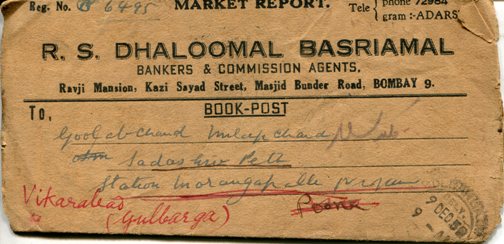 Reg. No. B 6495 MARKET REPORT. Tele { phone 72984
gram :-ADARS'
R. S. DHALOOMAL BASRIAMAL
BANKERS & COMMISSION AGENTS,
Ravji Mansion, Kazi Sayad Street, Masjid Bunder Road, BOMBAY 9.
BOOK-POST
To,
Goolabchand Milapchand
Sadashiv Pett
Station
Vikarabad
(Gulbarga)
Poona
9 DEC 58